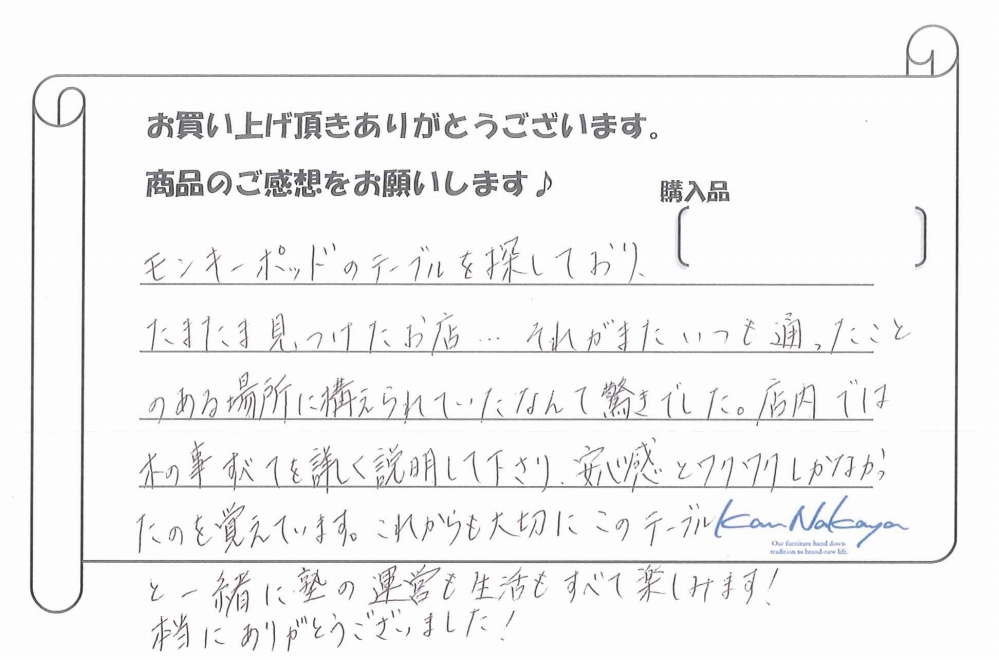 お買い上げ頂きありがとうございます。
商品のご感想をお願いします♪
購入品
モンキーポッドのテーブルを探しており、
たまたま見つけたお店… それがまたいつも通ったこと
のある場所に構えられていたなんて驚きでした。店内では
木の事すべてを詳しく説明して下さり、安心感とワクワクしかなかっ
たのを覚えています。これからも大切にこのテーブル
Kan Nakaya
Our furniture hand down
tradition to brand-new life.
と一緒に塾の運営も生活もすべて楽しみます!
本当にありがとうございました!